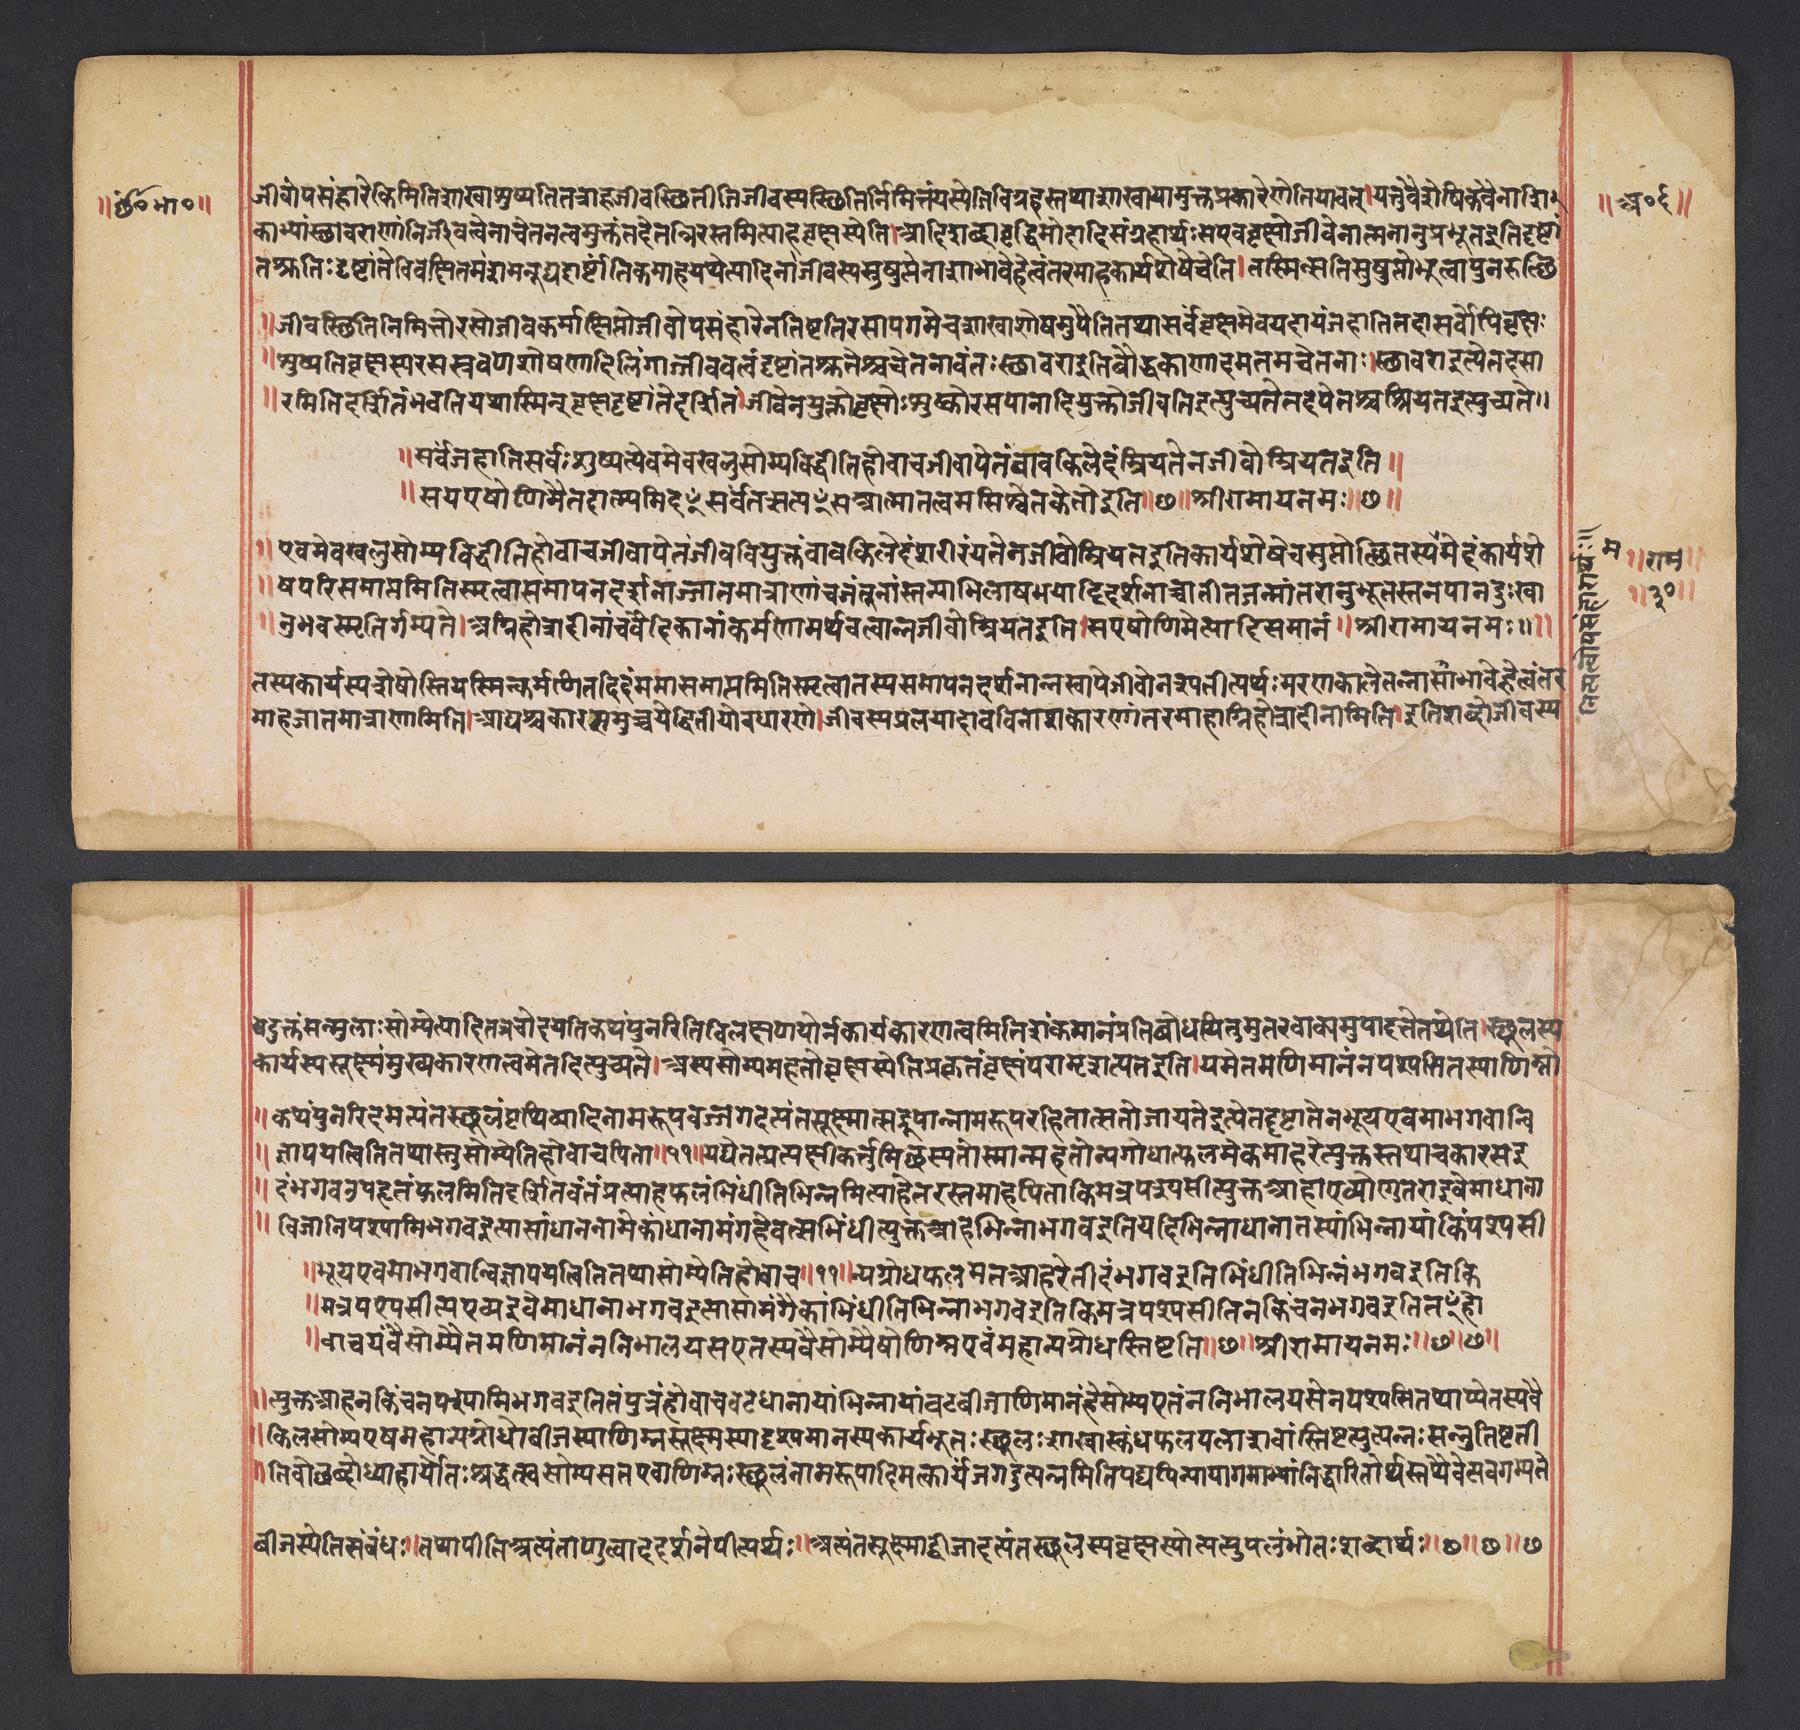 ॥छां॰भा॰॥
॥अ॰६॥
जीवोपसंहारेकिमितिशाखाशुष्यतितत्राहजीवस्थितीतिजीवस्यस्थितिर्निमित्तंयस्येतिविग्रहस्तथाशाखायामुक्तप्रकारेणेतियावत्।यत्तुवैशेषिकैर्वैनाशि
काभ्यांस्थावराणांनिर्जीवत्वेनाचेतनत्वमुक्तंतदेतन्निरस्तमित्याहवृक्षस्येति।आदिशब्दोवृद्धिमोहादिसंग्रहार्थःसएववृक्षोजीवेनात्मनानुप्रभूतइतिदृष्टां
तश्रुतिःदृष्टांतेविवक्षितमंशमनूद्यदार्ष्टांतिकमाहयथेत्यादिनाजीवस्यसुषुप्तेनाशाभावेहेत्वंतरमाहकार्यशेषेचेति।तस्मिन्सतिसुषुप्तोभूत्वापुनरुत्थि
॥जीवस्थितिनिमित्तोरसोजीवकर्माक्षिप्तोजीवोपसंहारेनतिष्टतिरसापगमेचशाखाशोषमुपैतितथासर्वंवृक्षमेवयदायंजहातितदासर्वोपिवृक्षः
॥शुष्यतिवृक्षस्यरसस्रवणशोषणादिलिंगाज्जीववत्वंदृष्टांतश्रुतेश्चचेतनावंतःस्थावराइतिबौद्धकाणादमतमचेतनाः।स्थावराइत्येतदसा
॥रमितिदर्शितंभवतियथास्मिन्वृक्षदृष्टांतेदर्शितं।जीवेनयुक्तोवृक्षोःशुष्कोरसपानादियुक्तोजीवतिइत्युच्यतेतदपेतश्चम्रियतइत्युच्यते॥
॥सर्वंजहातिसर्वःशुष्यत्येवमेवखलुसोम्यविद्धीतिहोवाचजीवापेतंवावकिलेदंम्रियतेनजीवोम्रियतइति॥
॥सयएषोणिमैतदात्म्यमिदꣳसर्वंतत्सत्यꣳसआत्मातत्वमसिश्वेतकेतोइति॥छ॥श्रीरामायनमः॥छ॥
॥एवमेवखलुसोम्यविद्धीतिहोवाचजीवापेतंजीववियुक्तंवावकिलेदंशरीरंम्रियतेनजीवोम्रियतइतिकार्यशेषेचसुप्तोत्थितस्यममेदंकार्यशे
॥षपरिसमाप्तमितिस्मृत्वासमापनदर्शनाज्जातमात्राणांचजंतूनांस्तन्याभिलाषभयादिदर्शनाच्चातीतजन्मांतरानुभूतस्तनपानदुःखा
॥नुभवस्मृतिर्गम्यते।अग्निहोत्रादीनांचवैदिकानांकर्मणामर्थवत्वान्नजीवोम्रियतइति।सएषोणिमेत्यादिसमानं॥श्रीरामायनमः॥॥
॥राम
॥३०॥
तस्यकार्यस्यशेषोस्तियस्मिन्कर्मणितदिदंममासमाप्तमितिस्मृत्वातस्यसमापनदर्शनान्नस्वापेजीवोनश्यतीत्यर्थःमरणकालेतन्नाशाभावेहेत्वंतर
माहजातमात्राणामिति।आद्यश्चकारःसमुच्चयेद्वितीयोवधारणे।जीवस्यप्रलयादावविनाशकारणांतरमाहाग्निहोत्रादीनामिति।इतिशब्दोजीवस्य
यदुक्तंसन्मूलाःसोम्येत्यादितत्रचोदयतिकथंपुनरितिविलक्षणयोर्नकार्यकारणत्वमितिशंकमानंप्रतिबोधयितुमुत्तरवाक्यमुपादत्तेतथेति।स्थूलस्य
कार्यस्यसूक्ष्मंमुख्यकारणत्वमेतदित्युच्यते।अस्यसोम्यमहतोवृक्षस्येतिप्रकृतंवृक्षंपरामृशत्यतइति।यमेतमणिमानंनपश्यसितस्याणिम्नो
॥कथंपुनरिदमत्यंतस्थूलंपृथिव्यादिनामरूपवज्जगदत्यंतसूक्ष्मात्सद्रूपान्नामरूपरहितात्सतोजायतेइत्येतद्दृष्टांतेनभूयएवमाभगवान्वि
॥ज्ञापयत्वितितथास्तुसोम्येतिहोवाचपिता॥११॥यद्येतत्प्रत्यक्षीकर्तुमिच्छस्यतोस्मान्महतोन्यग्रोधात्फलमेकमाहरेत्युक्तस्तथाचकारसइ
॥दंभगवउपहृतंफलमितिदर्शितवंतंप्रत्याहफलंभिंधीतिभिन्नमित्याहेतरस्तमाहपिताकिमत्रपश्यसीत्युक्तआहाण्व्योणुतराइवेमाधाना
॥बीजानिपश्यामिभगवइत्यासांधानानामेकांधानामंगहेवत्सभिंधीत्युक्तआहभिन्नाभगवइतियदिभिन्नाधानातस्यांभिन्नायांकिंपश्यसी
॥भूयएवमाभगवान्विज्ञापयत्वितितथासोम्येतिहोवाच॥११॥न्यग्रोधफलमतआहरेतीदंभगवइतिभिंधीतिभिन्नंभगवइतिकि
॥मत्रपश्यसीत्यण्व्यइवेमाधानाभगवइत्यासामंगैकांभिंधीतिभिन्नाभगवइतिकिमत्रपश्यसीतिनकिंचनभगवइतितꣳहो
॥वाचयंवैसोम्यैतमणिमानंननिभालयसएतस्यवैसोम्यैषोणिम्नएवंमहान्यग्रोधस्तिष्टति॥छ॥श्रीरामायनमः॥छ॥छ॥
॥त्युक्तआहनकिंचनपश्यामिभगवइतितंपुत्रंहोवाचवटधानायांभिन्नायांवटबीजाणिमानंहेसोम्यएतंननिभालयसेनपश्यसितथाप्येतस्यवै
॥किलसोम्यएषमहान्यग्रोधोबीजस्याणिम्नःसूक्ष्मस्यादृश्यमानस्यकार्यभूतःस्थूलःशाखास्कंधफलपलाशवांस्तिष्टत्युत्पन्नःसन्नुत्तिष्टती
॥तिवोच्छब्दोध्याहार्योतःश्रद्धत्स्वसोम्यसतएवाणिम्नःस्थूलंनामरूपादिमत्कार्यंजगदुत्पन्नमितियद्यपिन्यायागमाभ्यांनिर्द्धारितोर्थस्तथैवेत्यवगम्यते
बीजस्येतिसंबंधः॥तथापीतिअत्यंताणुत्वाददर्शनेपीत्यर्थः॥अत्यंतसूक्ष्माद्बीजादत्यंतस्थूलस्यवृक्षस्योत्पत्त्युपलंभोतःशब्दार्थः॥छ॥छ॥छ